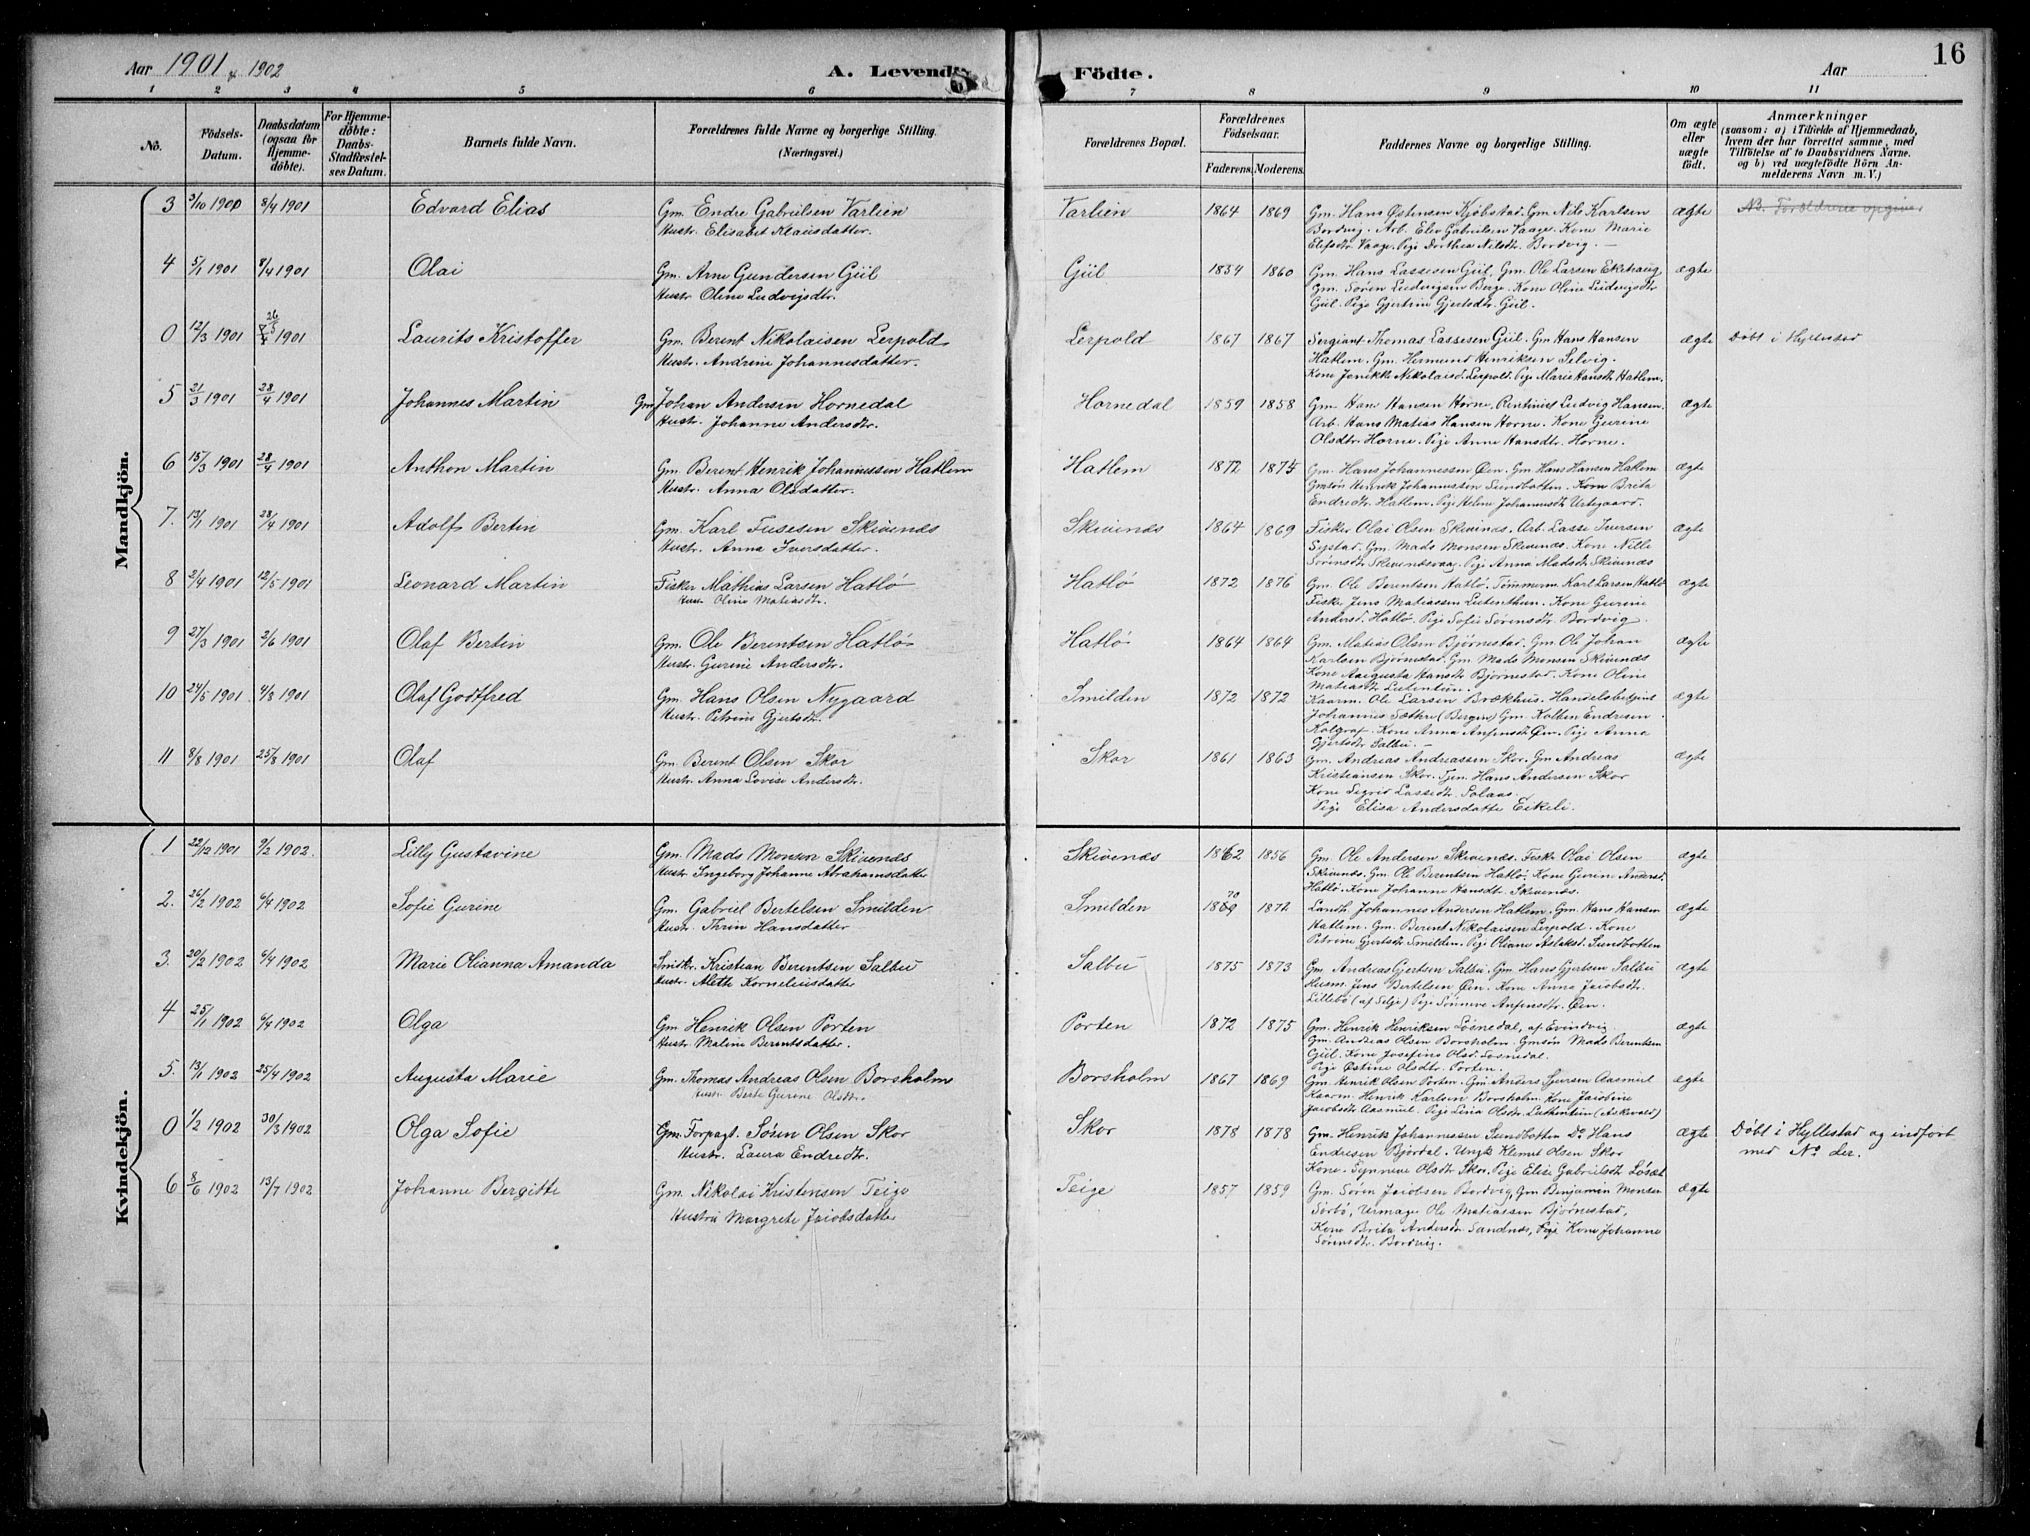 Aar 1901 & 1902
A. Levende Födte.
Aar
16
1 2 3 4 5 6 7 8 9 10 11
No.
Födsels-Datum.
Daabsdatum (ogsaa for Hjemmedöbte).
For Hjemmedöbte: Daabs-Stadfæstelses Datum.
Barnets fulde Navn.
Forældrenes fulde Navne og borgerlige Stilling. (Næringsvei.)
Forældrenes Bopæl.
Forældrenes Födselsaar.
Faderens. Moderens.
Faddernes Navne og borgerlige Stilling.
Om ægte eller uægte födt.
Anmærkninger (saasom: a) i Tilfælde af Hjemmedaab, hvem der har forrettet samme, med Tilföielse af to Daabsvidners Navne. og b) ved uægtefödte Börn Anmelderens Navn m. V.)
Mandkjön.
3 3/10 1900 8/4 1901 Edvard Elias
Gm. Endre Gabrielsen Varlien
Hustr. Elisabet Klausdatter
Varlien 1864 1869
Gm. Hans Østensen Kjøbstad. Gm Nils Karlsen
Bordvig. Arb. Elev Gabrielsen Vaage. Kone Marie
Elifsdtr Vaage. Pige Dorthea Nilsdtr. Bordvig. —
ægte NB. Forældrene opgiver
4 5/1 1901 8/4 1901 Olai
Gm. Arne Gundersen Giil
Hustr. Oline Ludvigsdtr.
Giil 1834 1860
Gm. Hans Lassesen Giil. Gm. Ole Larsen Ekehaug
Gm. Søren Ludvigsen Berge. Kone Oline Ludvigsdtr
Giil. Pige Gjertine Gjertsdtr. Giil.
ægte
0 12/3 1901 26/5 1901 Laurits Kristoffer
Gm. Berent Nikolaisen Lerpold
Hustr. Andrine Johannesdatter.
Lerpold 1867 1867
Sergiant Thomas Lassesen Giil. Gm Hans Hansen
Hatlem. Gm. Hermund Henriksen Selvig.
Kone Jenikke Nikolaisd. Lerpold. Pige Marie Hansdtr Hatlem.
ægte Døbt i Hyllestad
5 21/3 1901 28/4 1901 Johannes Martin
Gm Johan Andersen Hornedal
Hustr. Johanne Andersdtr.
Hornedal 1859 1858
Gm. Hans Hansen Horne. Ludvig Hansen.
Arb. Hans Matias Hansen Horne. Kone Gurine
Olsdtr. Horne. Pige Anne Hansdtr. Horne.
ægte
6 15/3 1901 28/4 1901 Anthon Martin
Gm Berent Henrik Johannessen Hatlem
Hustr. Anna Olsdatter.
Hatlem 1872 1875
Gm. Hans Johannessen Øen. Gm Hans Hansen Hatlem
Gmsøn Henrik Johannessen Sundbotten. Kone Brita
Endredtr. Hatlem. Pige Helene Johannesdtr
ægte
7. 13/1 1901 28/4 1901 Adolf Bertin
Gm. Karl Skivenæs
Hustr. Anna Iversdatter.
Skivenæs 1864 1869
Fisker Olai Olsen Skivenæs. Arb. Lasse Iversen
Systad. Gm. Mads Monsen Skivenæs. Kone Nille
Sørensdtr Skivenæsvaag. Pige Anna Madsdtr Skivenæs
ægte
8 2/4 1901 12/5 1901 Leonard Martin
Fisker Mathias Larsen Hatlø
Hust. Oline Matiasdtr.
Hatlø 1872 1876
Gm. Ole Berentsen Hatlø. Tømmerm. Karl Larsen Hatlø
Fisker Jens Matiassen Lutentun. Kone Gurine
Andersd. Hatlø. Pige Sofie Sørensdtr. Bordvig.
ægte
9 27/3 1901 2/6 1901 Olaf Bertin
Gm. Ole Berentsen Hatlø
Hustr. Gurine Andersdtr.
Hatlø 1864 1864
Gm. Matias Olsen Bjørnestad. Gm. Ole Johan
Karlsen Bjørnestad. Gm. Mads Monsen Skivenæs
Kone Augusta Hansdtr Bjørnestad. Kone Oline
Matiasdtr Lutentun.
ægte
10 24/5 1901 4/8 1901 Olaf Godtfred
Gm. Hans Olsen Nygaard
Hustr. Petrine Gjertsdtr.
Smilden 1872 1872
Kaarm. Ole Larsen Brækhus. Handelsbetjent
Johannes Sæthre (Bergen) Gm. Kolben Endresen
Kolgrof. Kone Anna Anfensdtr Øen. Pige Anna
Gjertsdtr Salbu. —
ægte
11 8/8 1901 25/8 1901 Olaf
Gm. Berent Olsen Skor
Hustr. Anna Lovise Andersdtr.
Skor 1861 1863
Gm. Andreas Andreassen Skor. Gm Andreas
Kristiansen Skor. Tjen. Hans Andersen Skor
Kone Sigrid Lassedtr. Solaas.
Pige Elisa Andersdatte Eikeli.
ægte
Kvindekjön.
1 22/12 1901 9/2 1902. Lilly Gustavine
Gm. Mads Monsen Skivenæs
Hustr. Ingeborg Johanne Abrahamsdatter
Skivenæs 1862 1856
Gm. Ole Andersen Skivenæs. Fisker Olai Olsen
Skivenæs. Gm. Ole Berentsen Hatlø. Kone Gurine Andersd.
Hatlø. Kone Johanne Hansdt. Skivenæs.
ægte
2. 26/2 1902 6/4 1902 Sofie Gurine
Gm. Gabriel Bertelsen Smilden
Hustr. Thrin Hansdatter
Smilden 70 1869 1872
Landh. Johannes Andersen Hatlem. Gm. Hans Hansen
Hatlem. Gm. Berent Nikolaisen Lerpold. Kone
Petrine Gjertsdtr Smilden. Pige Oliane Aslaksd. Sundbotten
ægte
3. 20/2 1902 6/4 1902 Marie Olianna Amanda
Smidkr. Kristian Berentsen Salbu
Hustr. Alette Korneliusdatter
Salbu 1875 1873
Gm. Andreas Gjertsen Salbu. Gm. Hans Gjertsen Salbu
Husm. Jens Bertelsen Øen. Kone Anna Jacobsdtr.
Lillebø (af Selje) Pige Sønneve Anfensdtr. Øen.
ægte
4 25/1 1902 6/4 1902 Olga
Gm Henrik Olsen Porten
Hustr. Maline Berentsdatter.
Porten 1872 1875
Gm. Henrik Henriksen Løsnedal, af Evindvig
Gm. Andreas Olsen Borsholm. Gmsøn Mads Berentsen
Giil. Kone Josefine Olsd. Løsnedal.
Pige Østine Olsdtr. Porten.
ægte
5. 13/1 1902 25/4 1902 Augusta Marie
Gm. Thomas Andreas Olsen Borsholm
Hustr. Berte Gurine Olsdtr.
Borsholm 1867 1869
Gm. Henrik Olsen Porten. Gm. Anders Sjursen Aasmul
Kaarm. Henrik Karlsen Borsholm. Kone Jacobine
Jacobsdtr Aasmul. Pige Lina Olsdtr. Lutentun (Askvold)
ægte
0 1/2 1902 30/3 1902 Olga Sofie
Gm. Forpagt. Søren Olsen Skor
Hustr. Laura Endredtr.
Skor 1878 1878
Gm. Henrik Johannessen Sundbotten Do Hans
Endresen Bjørdal. Ungk Klemet Olsen Skor
Kone Synneve Olsdtr. Skor. Pige Elise Gabrielsdtr Løsæt
ægte Døbt i Hyllestad og indført
med No der.
6 8/6 1902 13/7 1902 Johanne Bergitte
Gm. Nikolai Kristensen Teige
Hustru Margrete Jacobsdatter
Teige 1857 1859
Gm. Søren Jacobsen Bordvig, Gm Benjamin Monsen
Sørbø, Ole Matiassen Bjørnestad,
Kone Brita Andersdtr. Sandnes, Pige Kone Johanne
Sørensdtr. Bordvig.
ægte